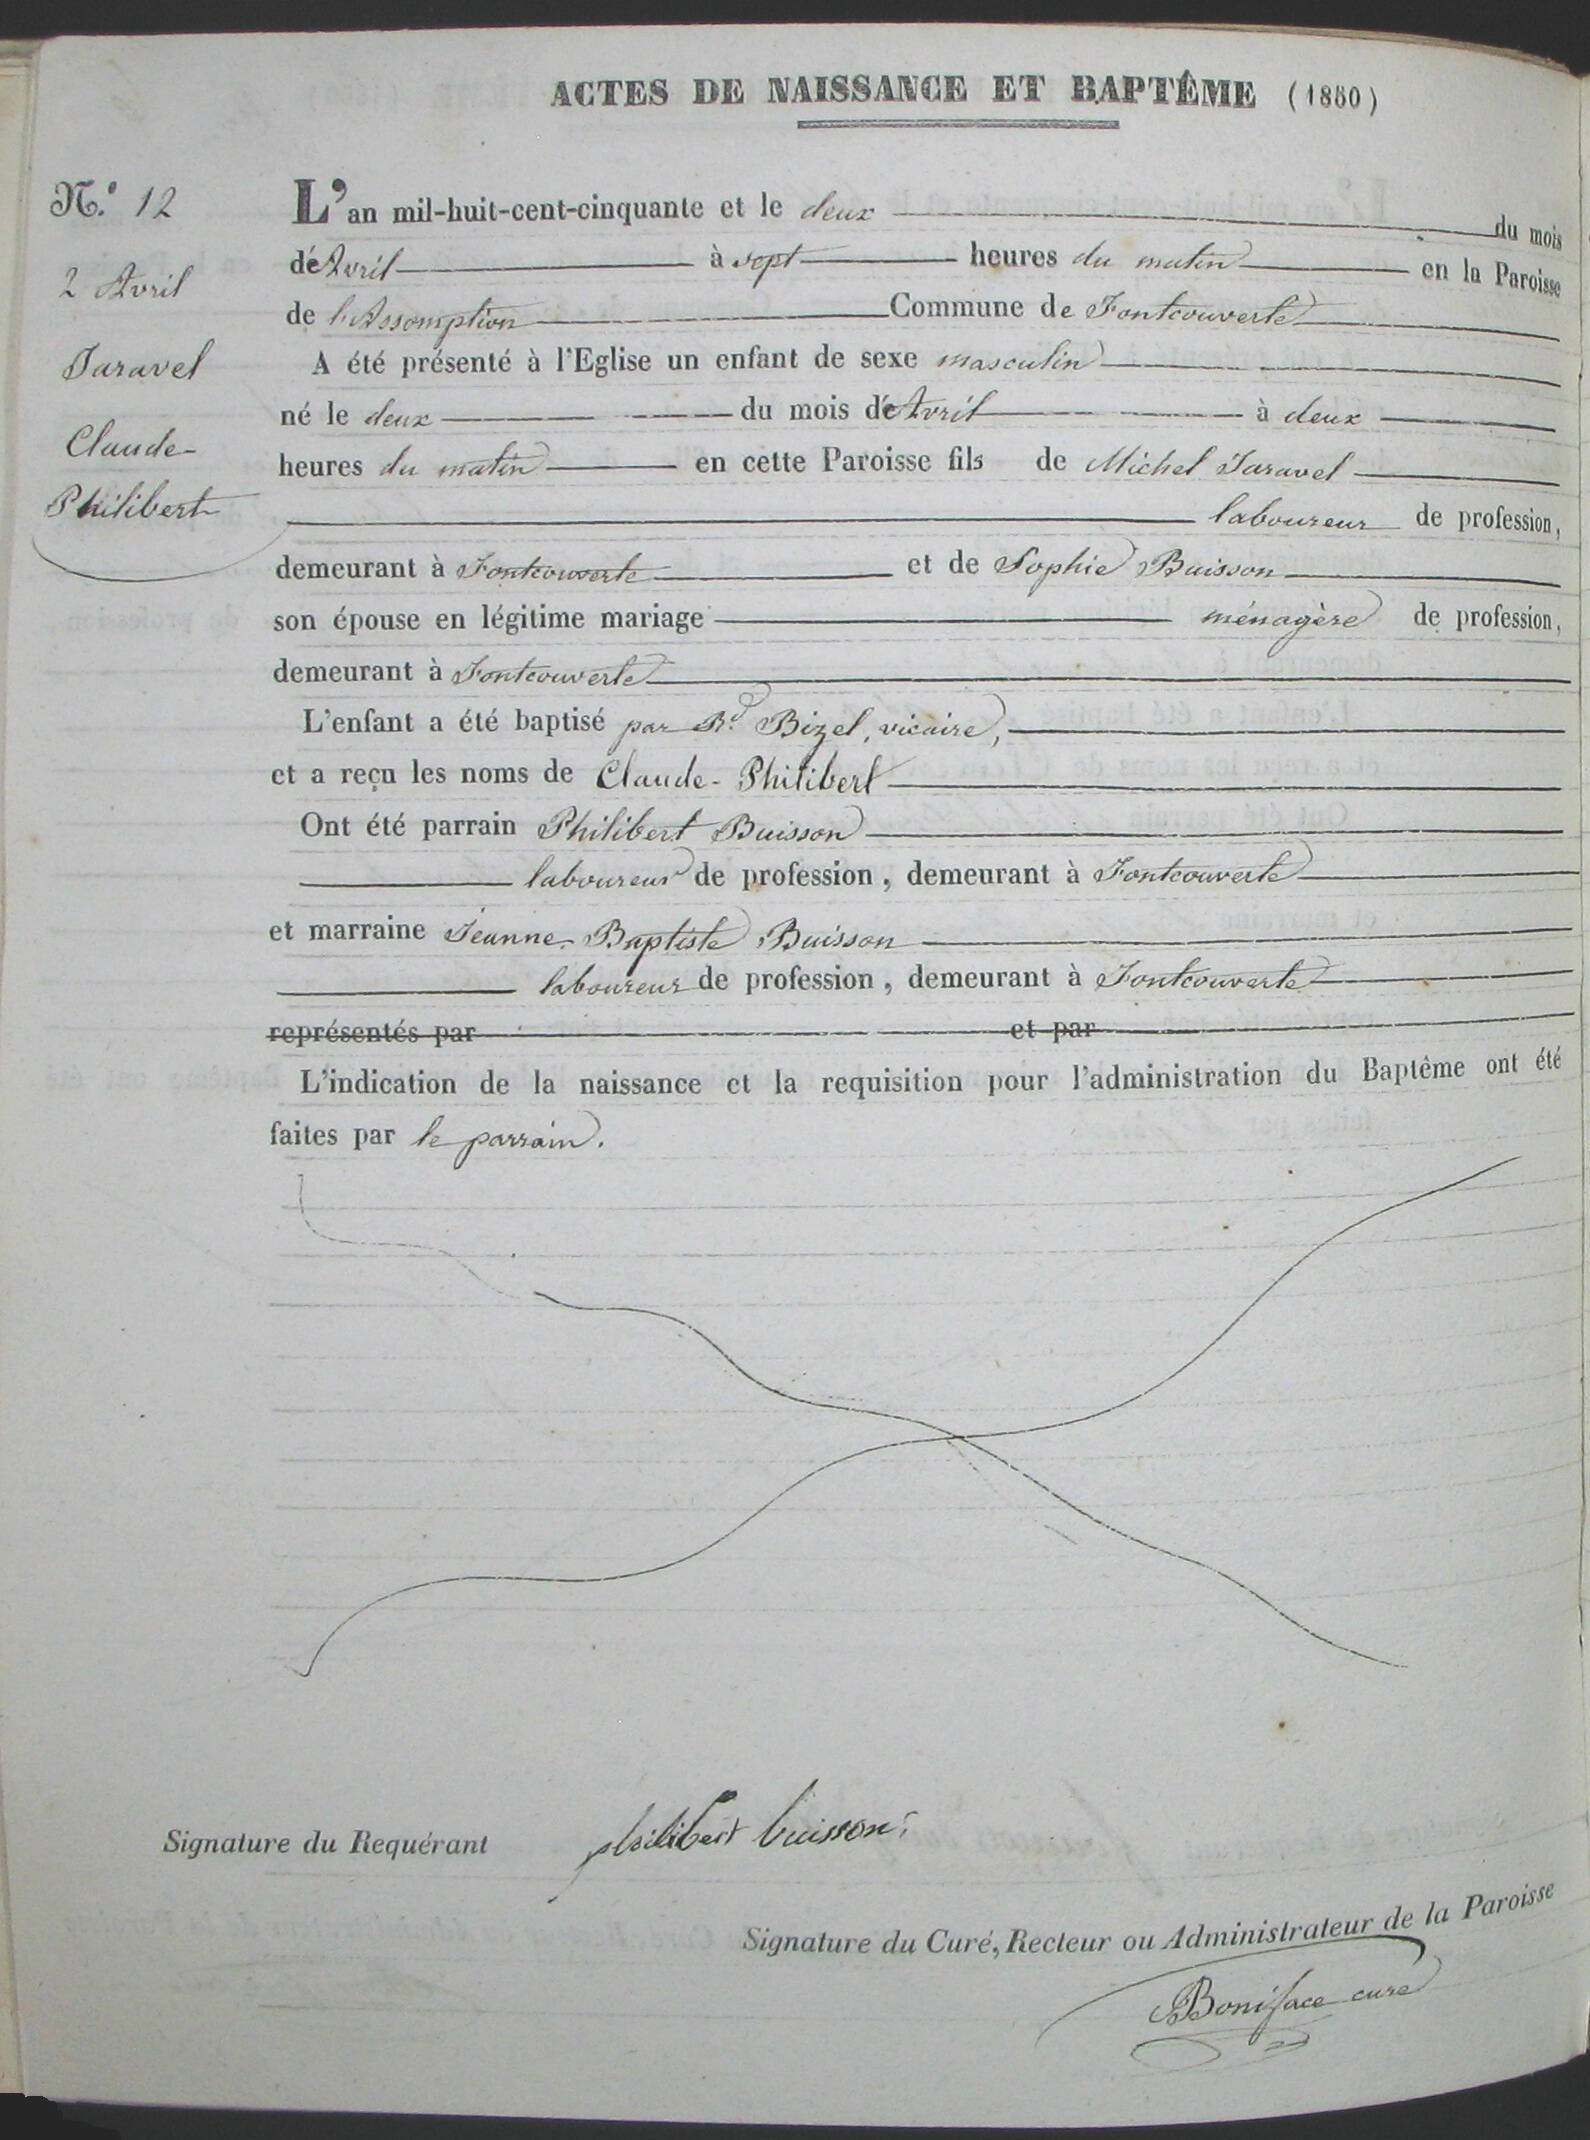 ACTES DE NAISSANCE ET BAPTÊME (1850)
N.° 12
2 Avril
Taravel
Claude-
Philibert
L'an mil-huit-cent-cinquante et le deux du mois
d'Avril à sept heures du matin en la Paroisse
de l'Assomption Commune de Fontcouverte
A été présenté à l'Eglise un enfant de sexe masculin
né le deux du mois d'Avril à deux
heures du matin en cette Paroisse fils de Michel Taravel
laboureur de profession,
demeurant à Fontcouverte et de Sophie Buisson
son épouse en légitime mariage ménagère de profession,
demeurant à Fontcouverte
L'enfant a été baptisé par Rd. Bizel, vicaire,
et a reçu les noms de Claude-Philibert
Ont été parrain Philibert Buisson
laboureur de profession, demeurant à Fontcouverte
et marraine Jeanne-Baptiste Buisson
laboureur de profession, demeurant à Fontcouverte
représentés par et par
L'indication de la naissance et la requisition pour l'administration du Baptême ont été
faites par le parrain.
Signature du Requérant philibert buisson
Signature du Curé, Recteur ou Administrateur de la Paroisse
Boniface curé